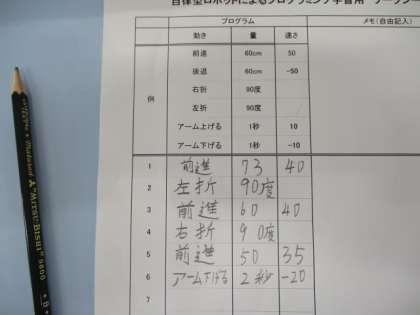 自律型ロボットによるプログラミング学習用 ワークシート
プログラム メモ(自由記入)
動き 量 速さ
例
前進 60cm 50
後退 60cm -50
右折 90度
左折 90度
アーム上げる 1秒 10
アーム下げる 1秒 -10
1 前進 73 40
2 左折 90度
3 前進 60 40
4 右折 90度
5 前進 50 35
6 アーム下げる 2秒 -20
7
MITSU-BISHI 9800